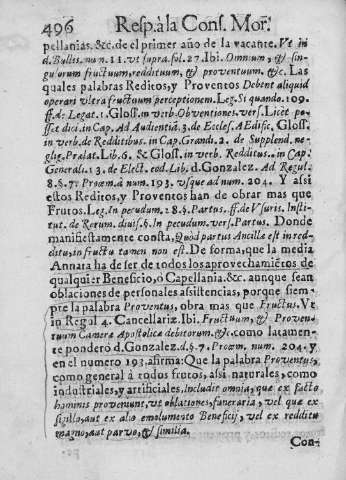 496 Resp. à la Cons. Mor.
pellanias. &c. de el primer año de la vacante. Vt in
d. Bulles. num 11. vt supra. fol. 27. Ibi. Omnium, & sin-
gulorum fructuum, reddituum, & proventuum. &c. Las
quales palabras Reditos, y Proventos Debent aliquid
operari vltra fructuum perceptionem. Leg. Si quando. 109.
ff. de Legat. 1. Gloss. in verb. Obventiones. vers. Licèt pos-
set dici. in Cap. Ad Audientiã. 3. de Eccles. AEdific. Gloss.
in verb. de Redditibus. in Cap. Grandi. 2. de Supplend. ne-
glig. Prælat. Lib. 6. & Gloss. in verb. Redditus.. in Cap.
Generali. 13. de Elect. eod. Lib. d. Gonzalez. Ad Regul.
8. §. 7. Proœm. à num. 193. vsque ad num. 204. Y assi
estos Reditos, y Proventos han de obrar mas que
Frutos. Leg. In pecudum. 28. §. Partus. ff. de Vsuris. Insti-
tut. de Rerum. divis. §. In pecudum. vers. Partus. Donde
manifiestamente consta, Quod partus Ancillæ est in red-
ditu, in fructu tamen non est. De forma, que la media
Annata ha de ser de todos los aprovechamiẽtos de
qualquier Beneficio, ò Capellania. &c. aunque sean
oblaciones de personales assistencias, porque siem-
pre la palabra Proventus, obra mas que Fructus. Vt
in Regul 4. Cancellariæ. Ibi. Fructuum, & Proven-
tuum Cameræ Apostolicæ debitorum. &c. como latamen-
te ponderò d. Gonzalez. d. §. 7. Proœm. num. 204. y
en el numero 193. afirma: Que la palabra Proventus,
como general à todos frutos, assi naturales, como
industriales, y artificiales, Includit omnia, quæ ex facto
hominis proveniunt, vt oblationes, funeraria, vel quæ ex
sigillo, aut ex alio emolumento Beneficij, vel ex redditu
magno, aut parvo, & similia.
Con-